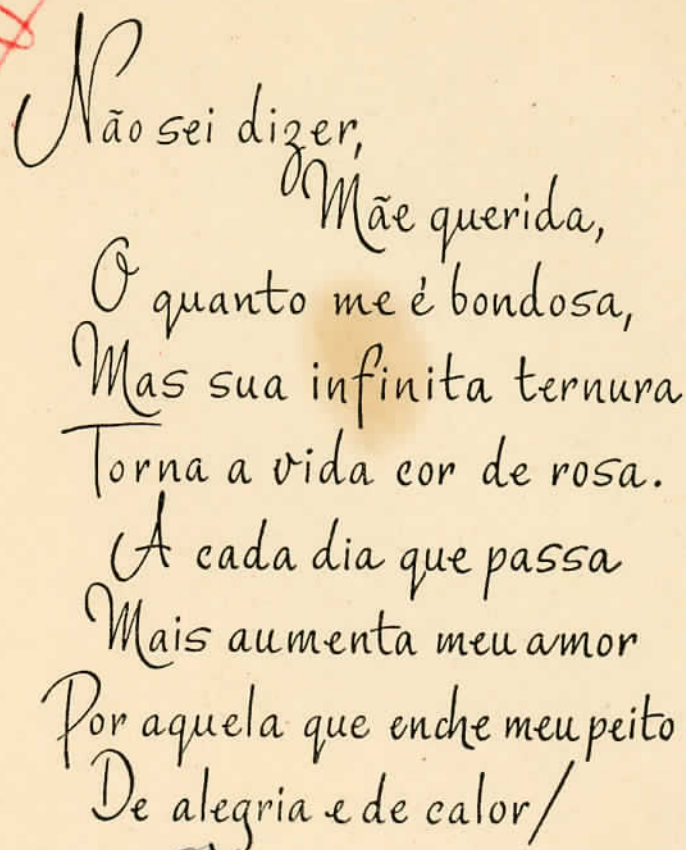 Não sei dizer,
Mãe querida,
O quanto me é bondosa,
Mas sua infinita ternura
Torna a vida cor de rosa.
A cada dia que passa
Mais aumenta meu amor
Por aquela que enche meu peito
De alegria e de calor/